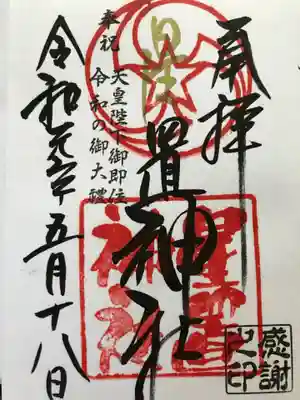 奉拝
置神社
奉祝
天皇陛下御即位
令和の御大禮
令和元年五月十八日
星置
神社
感謝
之印